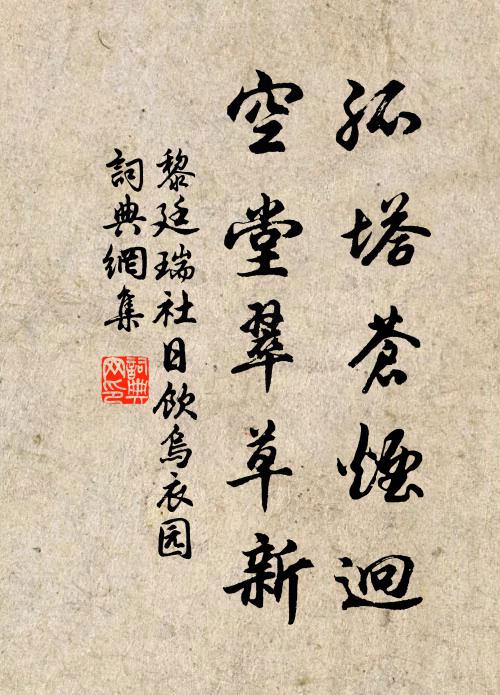 孤塔蒼煙迥
空堂翠草新
黎廷瑞社日飲烏衣园
詞典網集
詞典網印